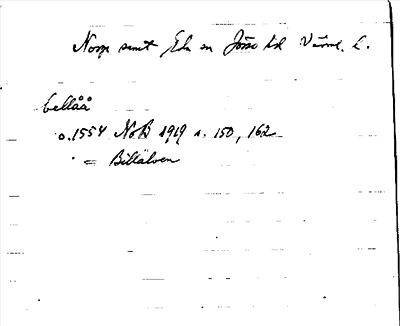 Norge samt Eda sn Jösse hd Värml. l.
bellåå
o. 1554 NoB 1919 s. 150, 162
= Billälven